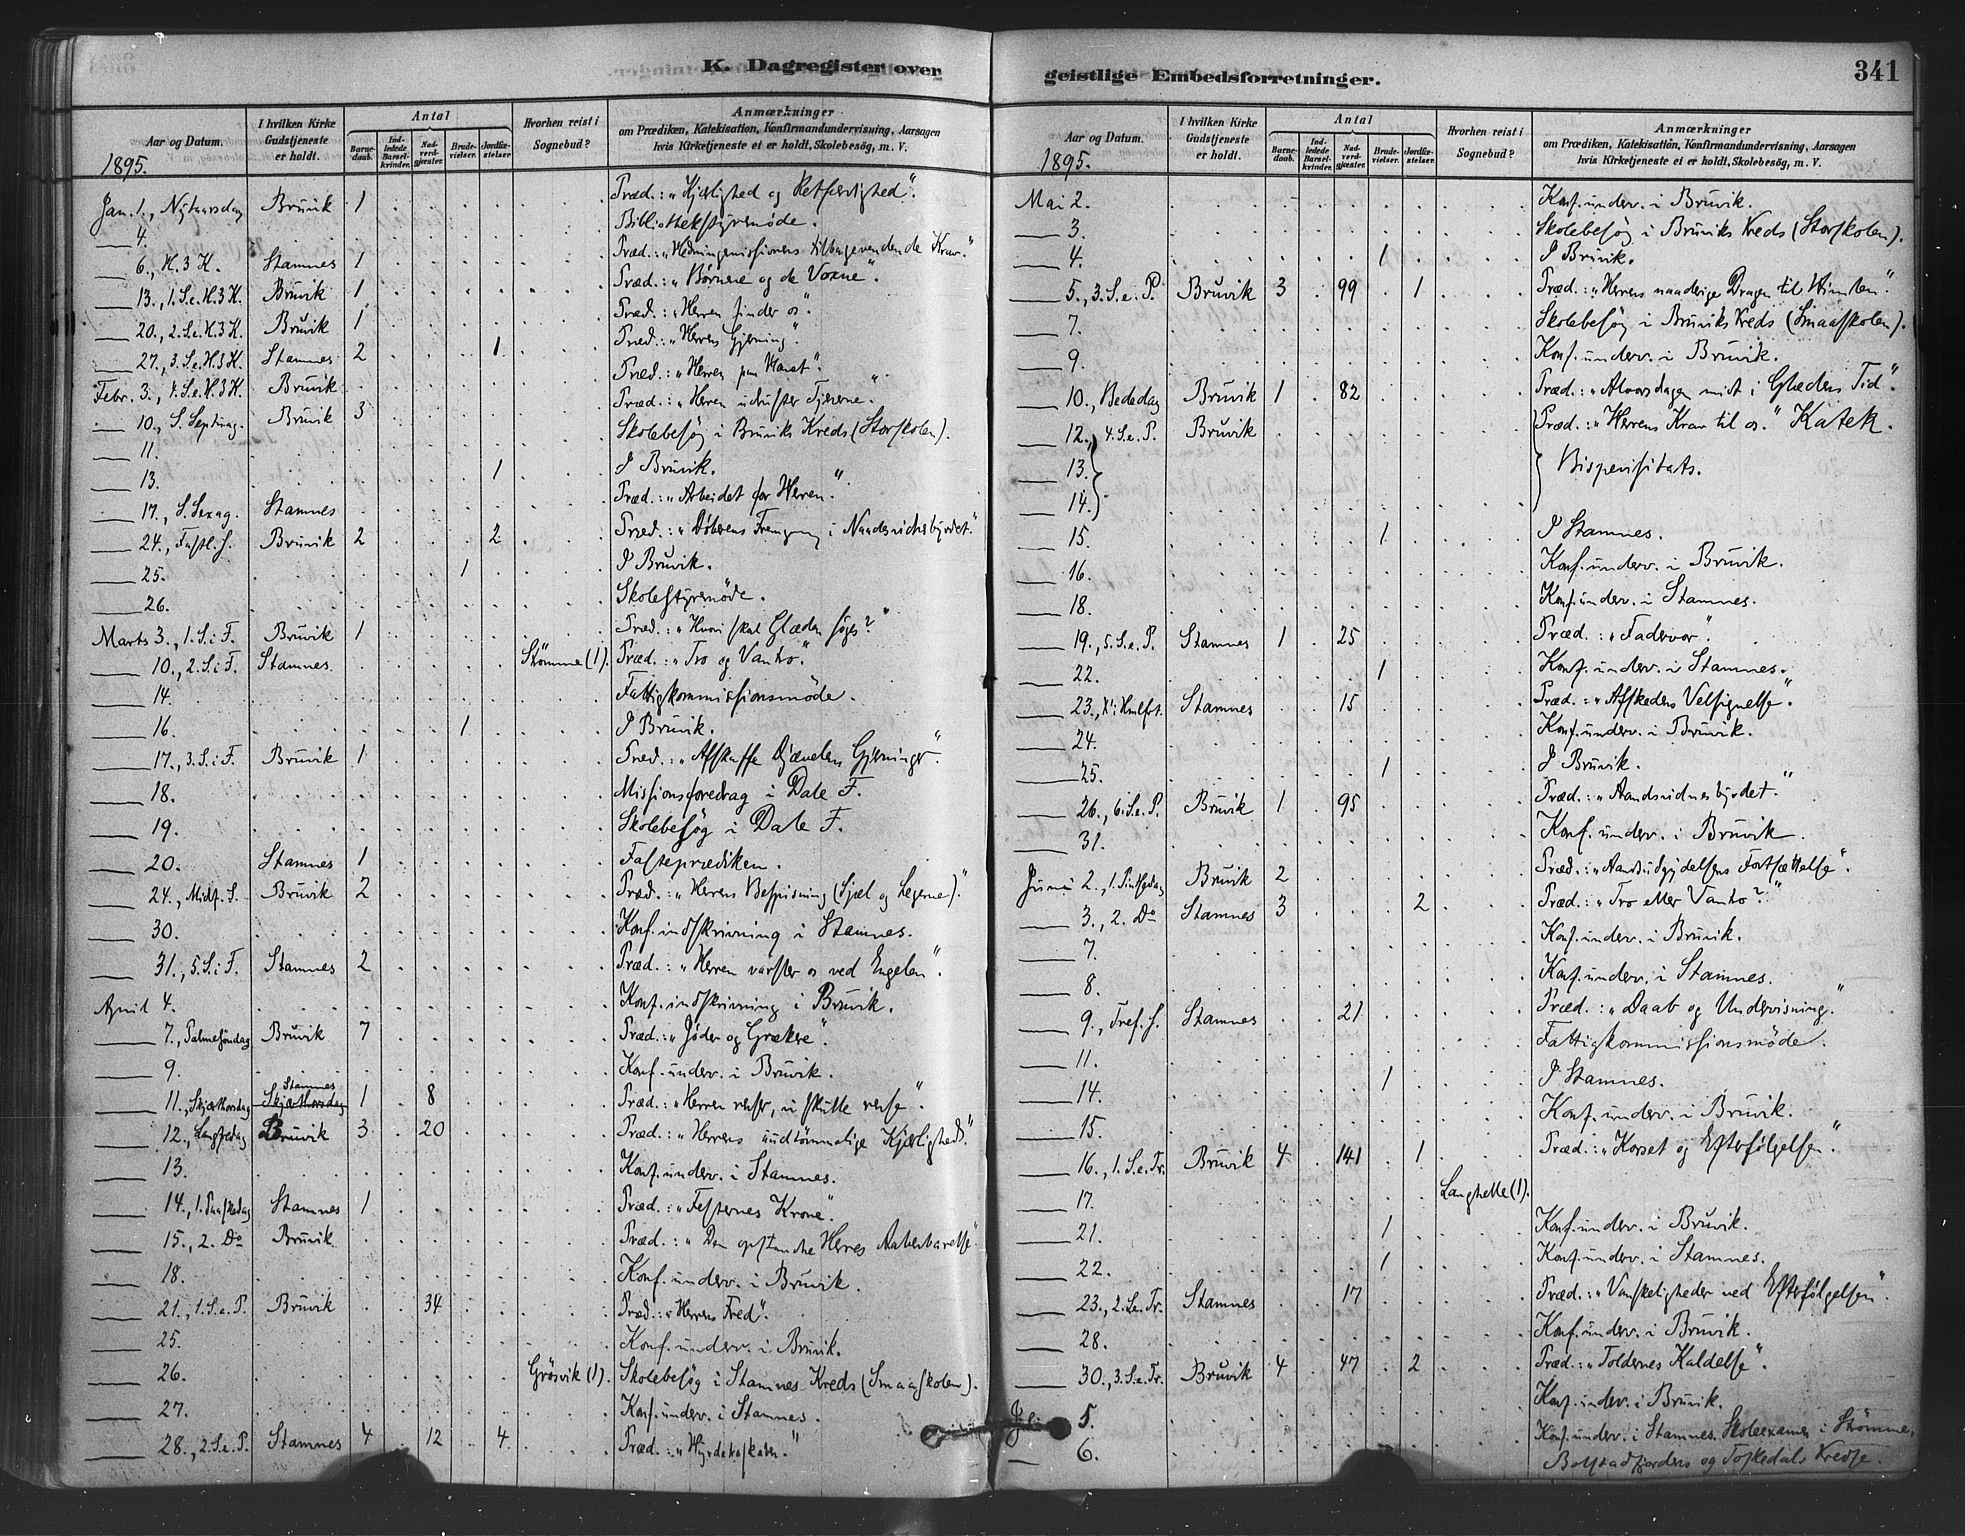 K. Dagregister over geistlige Embedsforretninger. 341
Aar og Datum. I hvilken Kirke Gudstjeneste er holdt. Antal Barnedaab. Indledede Barselkvinder. Nadverdgjæster. Brudevielser. Jordfæstelser. Hvorhen reist i Sognebud? Anmærkninger om Prædiken, Katekisation, Konfirmandundervisning, Aarsagen hvis Kirketjeneste ei er holdt, Skolebesøg, m. V.
1895.
Jan. 1., Nytaarsdag Bruvik 1 Præd.: „Kjærlighed og Retfærdighed“.
4. Bibliothekstyremöde.
6., H.3 K. Stamnes 1 Præd.: „Hedningemissionens tilbagevendende Krav“
13., 1.S.e.H.3 K. Bruvik 1 Præd.: „Börnene og de Voxne“.
20., 2.S.e.H.3 K. Bruvik 1 Præd.: „Herren finder os“.
27., 3.S.e.H.3 K. Stamnes 2 1 Præd.: „Herrens Gjerning“.
Febr. 3., 4.S.e.H.3 K. Bruvik Præd.: „Herren paa Havet“.
10., S. Septuag. Bruvik 3 Præd.: „Herren udruster Tjenerne“.
11. Skolebesøg i Bruviks Kreds (Storskolen).
13. 1 I Bruvik.
17., S. Sexag. Stamnes Præd.: „Arbeidet for Herren“.
24., Fastl. S. Bruvik 2 2 Præd.: „Døberens Fremgang i Naadesvidnesbyrdet.“
25. 1 I Bruvik.
26. Skolestyremöde.
Marts 3., 1.S.i F. Bruvik 1 Præd.: „Hvori skal Glæden söges?“
10., 2.S.i F. Stamnes Stømme (1). Præd.: „Tro og Vantro“.
14. Fattigkommissionsmöde.
16. 1 I Bruvik.
17., 3.S.i F. Bruvik 1 Præd.: „Afskaffe Djævelens Gjerninger“.
18. Missionsforedrag i Dale F.
19. Skolebesøg i Dale F.
20. Stamnes 1 Fasteprædiken.
24., Midf. S. Bruvik 2 Præd.: „Herrens Bespisning (Sjæl og Legeme).“
30. Konf. indskrivning i Stamnes.
31., 5.S.i F. Stamnes 2 Præd.: „Herren varsler os ved Engelen“.
April 4. Konf. indskrivning i Bruvik.
7., Palmesöndag Bruvik 7 Præd.: „Jöder og Grækere“.
9. Konf. underv. i Bruvik.
11., Skjærthorsdag Stamnes 1 8 Præd.: „Herren renser, vi skulle rense“.
12., Langfredag Bruvik 3 20 Præd.: „Herrens uudtömmelige Kjærlighed“.
13. Konf. underv. i Stamnes.
14., 1. Paaskedag Stamnes 1 Præd.: „Festernes Krone“.
15., 2. Do Bruvik Præd.: „Den opstandne Herres Aabenbarelse“
18. Konf. underv. i Bruvik.
21., 1.S.e.P. Bruvik 34 Præd.: „Herrens Fred“.
25. Konf. underv. i Bruvik.
26. Grösvik (1). Skolebesøg i Stamnes Kreds (Smaaskolen).
27. Konf. underv. i Stamnes.
28., 2.S.e.P. Stamnes 4 12 4 Præd.: „Hyrdeboskaben“
Aar og Datum. I hvilken Kirke Gudstjeneste er holdt. Antal Barnedaab. Indledede Barselkvinder. Nadverdgjæster. Brudevielser. Jordfæstelser. Hvorhen reist i Sognebud? Anmærkninger om Prædiken, Katekisation, Konfirmandundervisning, Aarsagen hvis Kirketjeneste ei er holdt, Skolebesøg, m. V.
1895.
Mai 2. Konf. underv. i Bruvik.
3. Skolebesøg i Bruviks Kreds (Storskolen).
4. 1 I Bruvik.
5., 3.S.e.P. Bruvik 3 99 1 Præd.: „Herrens naaderige Dragen til Himlen“.
7. Skolebesøg i Bruviks Kreds (Smaaskolen).
9. Konf. underv. i Bruvik.
10., Bededag Bruvik 1 82 Præd.: „Alvorsdagen midt i Glædens Tid“.
12., 4.S.e.P. Bruvik Præd.: „Herrens Krav til os“ Katek.
13. Bispevisitats.
14.
15. 1 I Stamnes.
16. Konf. underv. i Bruvik.
18. Konf. underv. i Stamnes.
19., 5.S.e.P. Stamnes 1 25 Præd.: „Fadervor“.
22. 1 Konf. underv. i Stamnes.
23., X'i Hmlfrt. Stamnes 15 Præd.: „Afskedens Velsignelse“
24. Konf. underv. i Bruvik.
25. 1 I Bruvik.
26., 6.S.e.P. Bruvik 1 95 Præd.: „Aandsvidnesbyrdet.“
31. Konf. underv. i Bruvik.
Juni 2., 1. Pintsedag Bruvik 2 Præd.: „Aandsudgydelsens Fortsættelse“.
3., 2. Do Stamnes 3 2 Præd.: „Tro eller Vantro?“
7. Konf. underv. i Bruvik.
8. Konf. underv. i Stamnes.
9., Tref. S. Stamnes 21 Præd.: „Daab og Undervisning“.
11. Fattigkommissionsmöde.
14. 1 I Stamnes.
15. Konf. underv. i Bruvik.
16., 1.S.e.Tr. Bruvik 4 141 1 Præd.: „Korset og Efterfölgelsen“
17. Langhelle (1).
21. 1 Konf. underv. i Bruvik.
22. 1 Konf. underv. i Stamnes.
23., 2.S.e.Tr. Stamnes 17 Præd.: „Vanskeligheder ved Efterfölgelsen“.
28. Konf. underv. i Bruvik.
30., 3.S.e.Tr. Bruvik 4 47 2 Præd.: „Toldernes Kaldelse“.
Juli 5. Konf. underv. i Bruvik.
6. Konf. underv. i Stamnes. Skoleexamen i Stömme,
Bolstadfjordens og Toskedals Kredse.